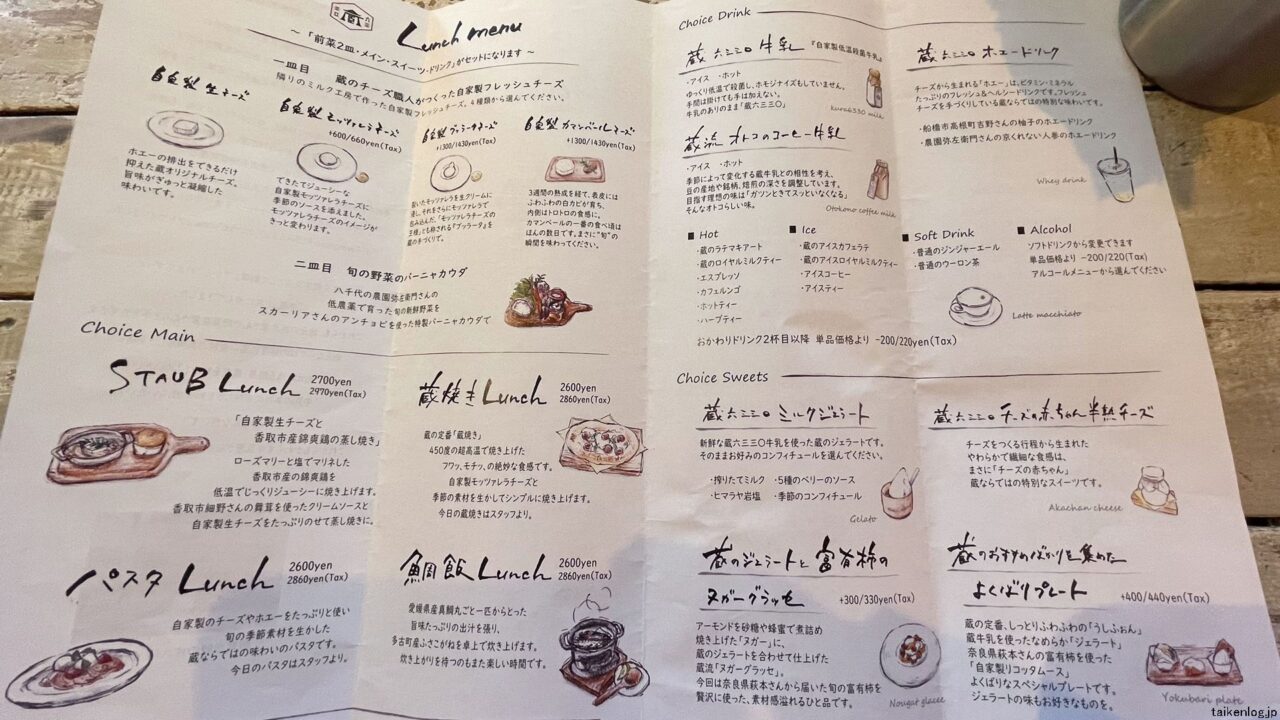 Lunch menu
～「前菜2皿・メイン・スイーツ・ドリンク」がセットになります～
一皿目 蔵のチーズ職人がつくった自家製フレッシュチーズ
隣りのミルク工房で作った自家製フレッシュチーズ。4種類から選んでください。
自家製 生チーズ
ホエーの排出をできるだけ
抑えた蔵オリジナルチーズ。
旨味がぎゅっと凝縮した
味わいです。
自家製 モッツァレラチーズ
+600/660yen(Tax)
できたてジューシーな
自家製モッツァレラチーズに
季節のソースを添えました。
モッツァレラチーズのイメージが
きっと変わります。
自家製 ブッラータチーズ
+1300/1430yen(Tax)
裂いたモッツァレラを生クリームに
浸し、それをさらにモッツァレラで
包み込んだ、「モッツァレラチーズの
王様」とも称される「ブッラータ」を
蔵の手づくりで。
自家製 カマンベールチーズ
+1300/1430yen(Tax)
3週間の熟成を経て、表皮には
ふわふわの白カビが育ち、
内側はトロトロの食感に。
カマンベールの一番の食べ頃は
ほんの数日です。まさに"旬"の
瞬間を味わってください。
二皿目 旬の野菜のバーニャカウダ
八千代の農園弥左衛門さんの
低農薬で育った旬の新鮮野菜を
スカーリアさんのアンチョビを使った特製バーニャカウダで
Choice Main
STAUB Lunch
2700yen
2970yen(Tax)
「自家製生チーズと
香取市産錦爽鶏の蒸し焼き」
ローズマリーと塩でマリネした
香取市産の錦爽鶏を
低温でじっくりジューシーに焼き上げます。
香取市細野さんの舞茸を使ったクリームソースと
自家製生チーズをたっぷりのせて蒸し焼きに。
蔵焼きLunch
2600yen
2860yen(Tax)
蔵の定番「蔵焼き」
450度の超高温で焼き上げた
フワッ、モチッ、の絶妙な食感です。
自家製モッツァレラチーズと
季節の素材を生かしてシンプルに焼き上げます。
今日の蔵焼きはスタッフより。
パスタ Lunch
2600yen
2860yen(Tax)
自家製のチーズやホエーをたっぷりと使い
旬の季節素材を生かした
蔵ならではの味わいのパスタです。
今日のパスタはスタッフより。
鯛飯Lunch
2600yen
2860yen(Tax)
愛媛県産真鯛丸ごと一匹からとった
旨味たっぷりの出汁を張り、
多古町産ふさこがねを卓上で炊き上げます。
炊き上がりを待つのもまた楽しい時間です。
Choice Drink
蔵六三三〇牛乳 『自家製低温殺菌牛乳』
・アイス ・ホット
ゆっくり低温で殺菌し、ホモジナイズもしていません。
手間は掛けても手は加えない。
牛乳のありのまま「蔵六三三〇」
kura6330 milk
蔵流 オトコのコーヒー牛乳
・アイス ・ホット
季節によって変化する蔵牛乳との相性を考え、
豆の産地や銘柄、焙煎の深さを調整しています。
目指す理想の味は「ガツンときてスッといなくなる」
そんなオトコらしい味。
Otokono coffee milk
蔵六三三〇ホエードリンク
チーズから生まれる「ホエー」は、ビタミン・ミネラル
たっぷりのフレッシュ＆ヘルシードリンクです。フレッシュ
チーズを手づくりしている蔵ならではの特別な味わいです。
・船橋市高根町吉野さんの柚子のホエードリンク
・農園弥左衛門さんの京くれない人参のホエードリンク
Whey drink
■ Hot
・蔵のラテマキアート
・蔵のロイヤルミルクティー
・エスプレッソ
・カフェルンゴ
・ホットティー
・ハーブティー
■ Ice
・蔵のアイスカフェラテ
・蔵のアイスロイヤルミルクティー
・アイスコーヒー
・アイスティー
■ Soft Drink
・普通のジンジャーエール
・普通のウーロン茶
■ Alcohol
ソフトドリンクから変更できます
単品価格より -200/220(Tax)
アルコールメニューから選んでください
Latte macchiato
おかわりドリンク2杯目以降 単品価格より -200/220yen(Tax)
Choice Sweets
蔵六三三〇ミルクジェラート
新鮮な蔵六三三〇牛乳を使った蔵のジェラートです。
そのままお好みのコンフィチュールを選んでください。
・搾りたてミルク ・5種のベリーのソース
・ヒマラヤ岩塩 ・季節のコンフィチュール
Gelato
蔵六三三〇チーズの赤ちゃん半熟チーズ
チーズをつくる行程から生まれた
やわらかで繊細な食感は、
まさに「チーズの赤ちゃん」
蔵ならではの特別なスイーツです。
Akachan cheese
蔵のジェラートと富有柿の
ヌガーグラッセ
+300/330yen(Tax)
アーモンドを砂糖や蜂蜜で煮詰め
焼き上げた「ヌガー」に、
蔵のジェラートを合わせて仕上げた
蔵流「ヌガーグラッセ」。
今回は奈良県萩本さんから届いた旬の富有柿を
贅沢に使った、素材感溢れるひと品です。
Nougat glacee
蔵のおすすめばかりを集めた
よくばりプレート
+400/440yen(Tax)
蔵の定番、しっとりふわふわの「うしふぉん」
蔵牛乳を使ったなめらか「ジェラート」
奈良県萩本さんの富有柿を使った
「自家製リコッタムース」
よくばりなスペシャルプレートです。
ジェラートの味もお好きなものを。
Yokubari plate
taikenlog.jp